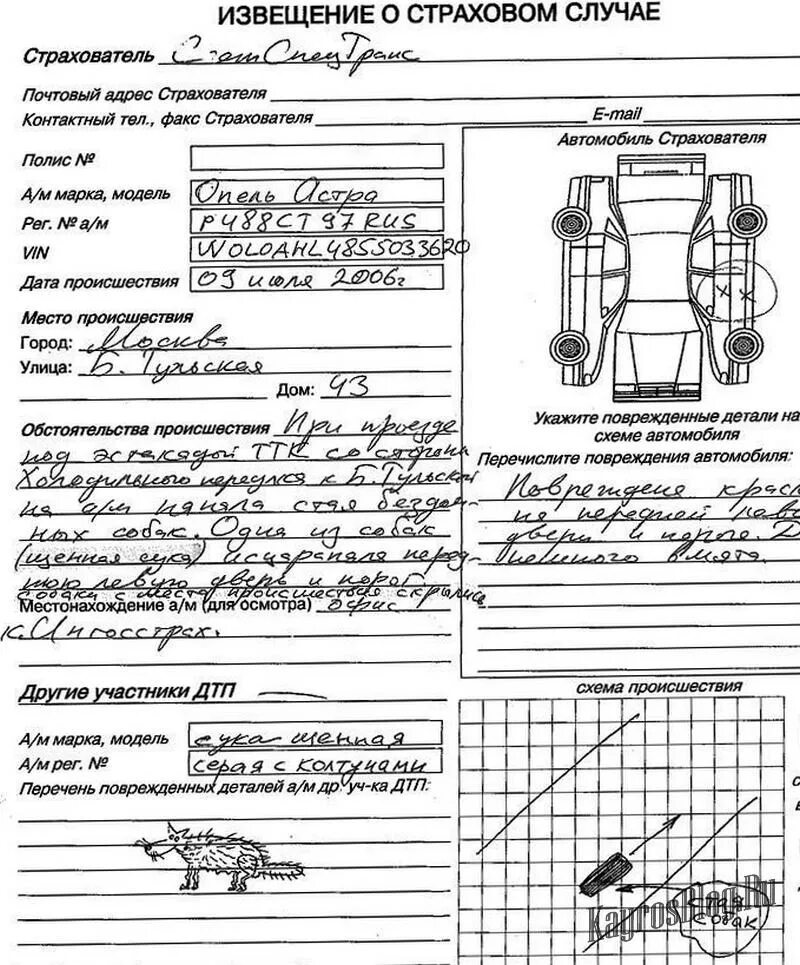 ИЗВЕЩЕНИЕ О СТРАХОВОМ СЛУЧАЕ
Страхователь СтатСпецТранс
Почтовый адрес Страхователя
Контактный тел., факс Страхователя E-mail
Полис №
А/м марка, модель Опель Астра
Рег. № а/м Р488СТ97RUS
VIN WOLOAHL4855033620
Дата происшествия 09 июля 2006г
Место происшествия
Город: Москва
Улица: Б. Тульская
Дом: 43
Обстоятельства происшествия При проезде
под эстакадой ТТК со стороны
Холодильного переулка к Б. Тульской
на а/м напала стая бездом-
ных собак. Одна из собак
(щенная сука) исцарапала перед-
нюю левую дверь и порог.
Собаки с места происшествия скрылись
Местонахождение а/м (для осмотра) офис
к. Ингосстрах.
Автомобиль Страхователя
Укажите поврежденные детали на
схеме автомобиля
Перечислите повреждения автомобиля:
Повреждена крас
на передней лево
двери и пороге. Д
немного вмята.
Другие участники ДТП
А/м марка, модель сука щенная
А/м рег. № серая с колтунами
Перечень поврежденных деталей а/м др. уч-ка ДТП:
схема происшествия
стая
собак
KayrosBlog.Ru